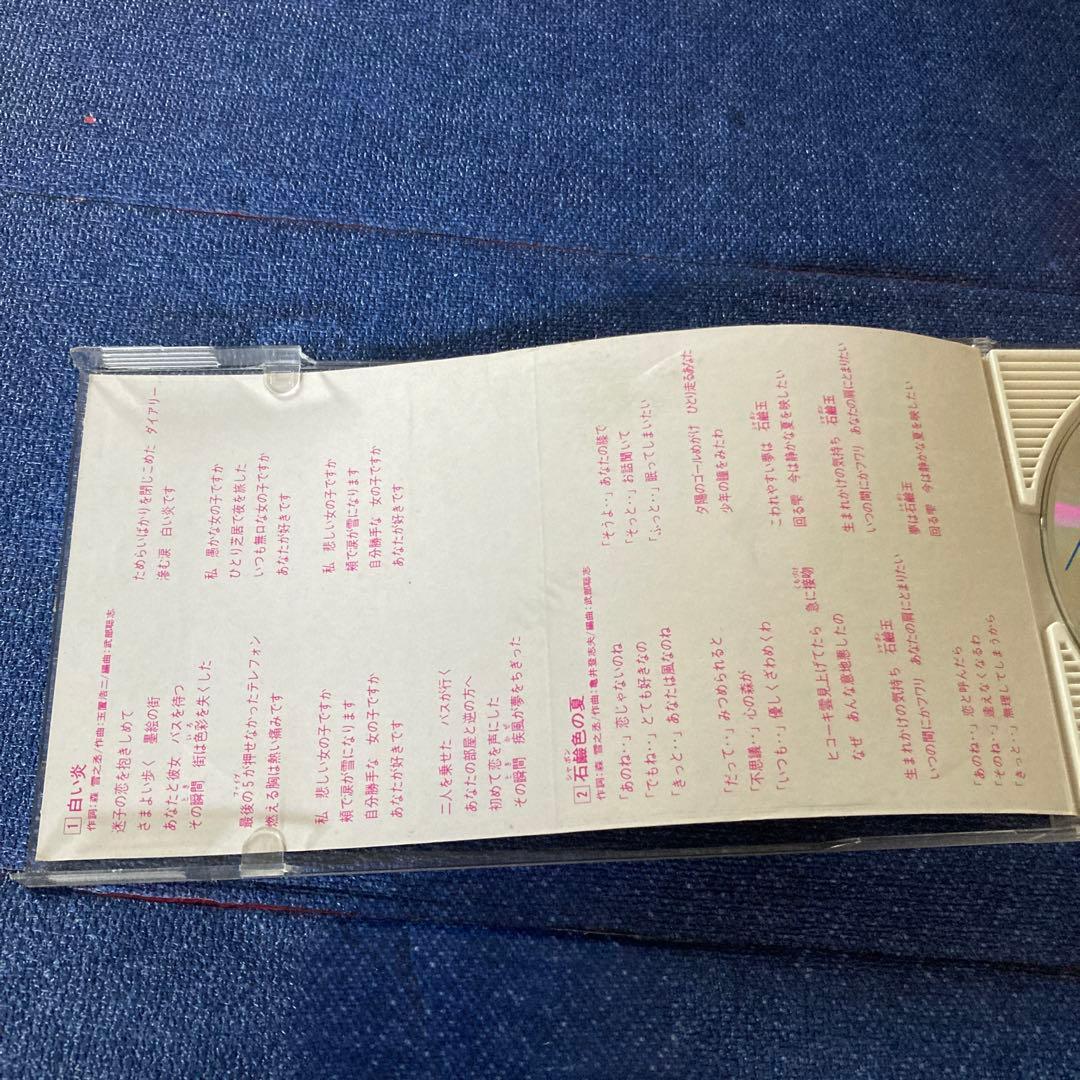 1 白い炎
作詞：森 雪之丞/作曲：玉置浩二/編曲：武部聡志
迷子の恋を抱きしめて
さまよい歩く 墨絵の街
あなたと彼女 バスを待つ
その瞬間 街は色彩を失くした
最後の5が押せなかったテレフォン
燃える胸は熱い痛みです
私 悲しい女の子ですか
頬で涙が雪になります
自分勝手な 女の子ですか
あなたが好きです
二人を乗せた バスが行く
あなたの部屋と逆の方へ
初めて恋を声にした
その瞬間 疾風が夢をちぎった
ためらいばかりを閉じこめた ダイアリー
滲む涙 白い炎です
私 愚かな女の子ですか
ひとり芝居で夜を旅した
いつも無口な女の子ですか
あなたが好きです
私 悲しい女の子ですか
頬で涙が雪になります
自分勝手な 女の子ですか
あなたが好きです
2 石鹼色の夏
作詞：森 雪之丞/作曲：亀井登志夫/編曲：武部聡志
「あのね‥」恋じゃないのね
「でもね‥」とても好きなの
「きっと‥」あなたは風なのね
「だって‥」みつめられると
「不思議‥」心の森が
「いつも‥」優しくざわめくわ
ヒコーキ雲見上げてたら 急に接吻
なぜ あんな意地悪したの
生まれかけの気持ち 石鹼玉
いつの間にかフワリ あなたの肩にとまりたい
「あのね‥」恋と呼んだら
「そのね‥」逢えなくなるわ
「きっと‥」無理してしまうから
「そうよ‥」あなたの膝で
「そっと‥」お話聞いて
「ふっと‥」眠ってしまいたい
夕陽のゴールめがけ ひとり走るあなた
少年の瞳をみたわ
こわれやすい夢は 石鹼玉
回る雫 今は静かな夏を映したい
生まれかけの気持ち 石鹼玉
いつの間にかフワリ あなたの肩にとまりたい
夢は石鹼玉
回る雫 今は静かな夏を映したい